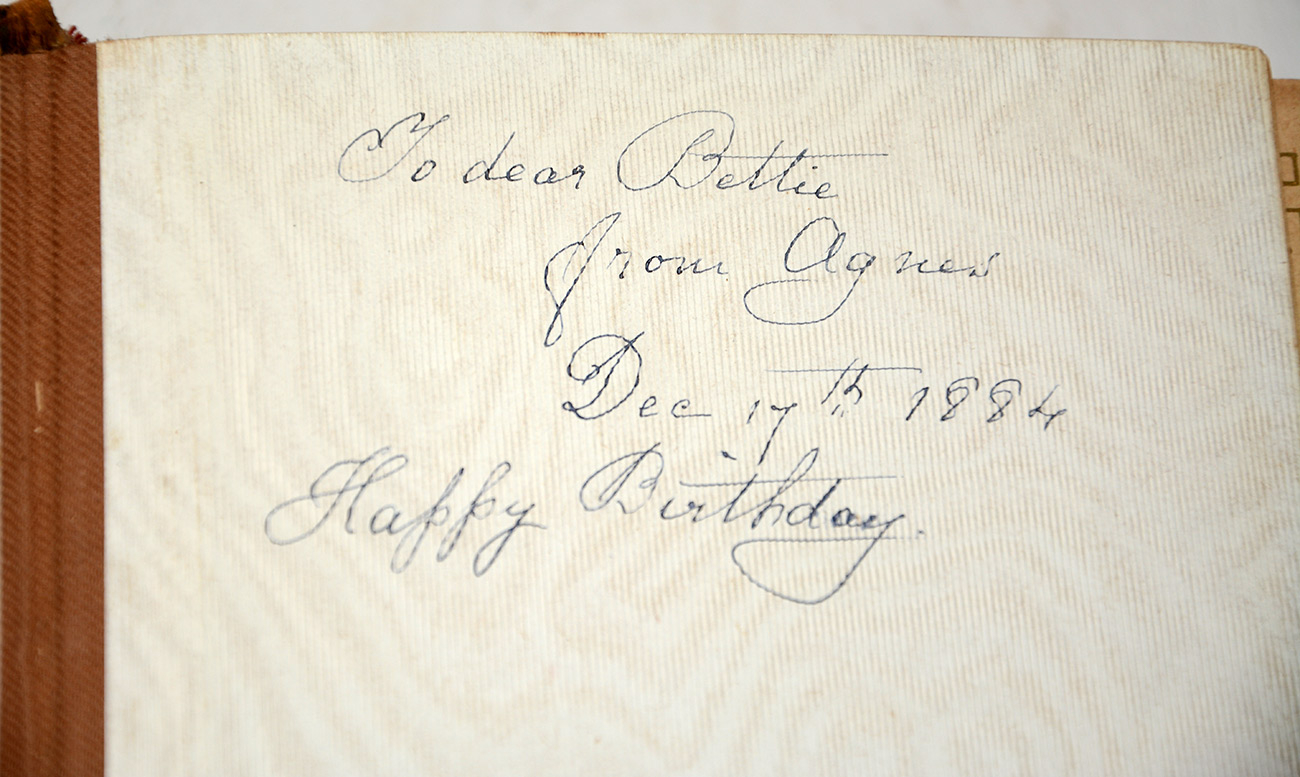 To dear Bettie
from Agnes
Dec 17th 1884
Happy Birthday.